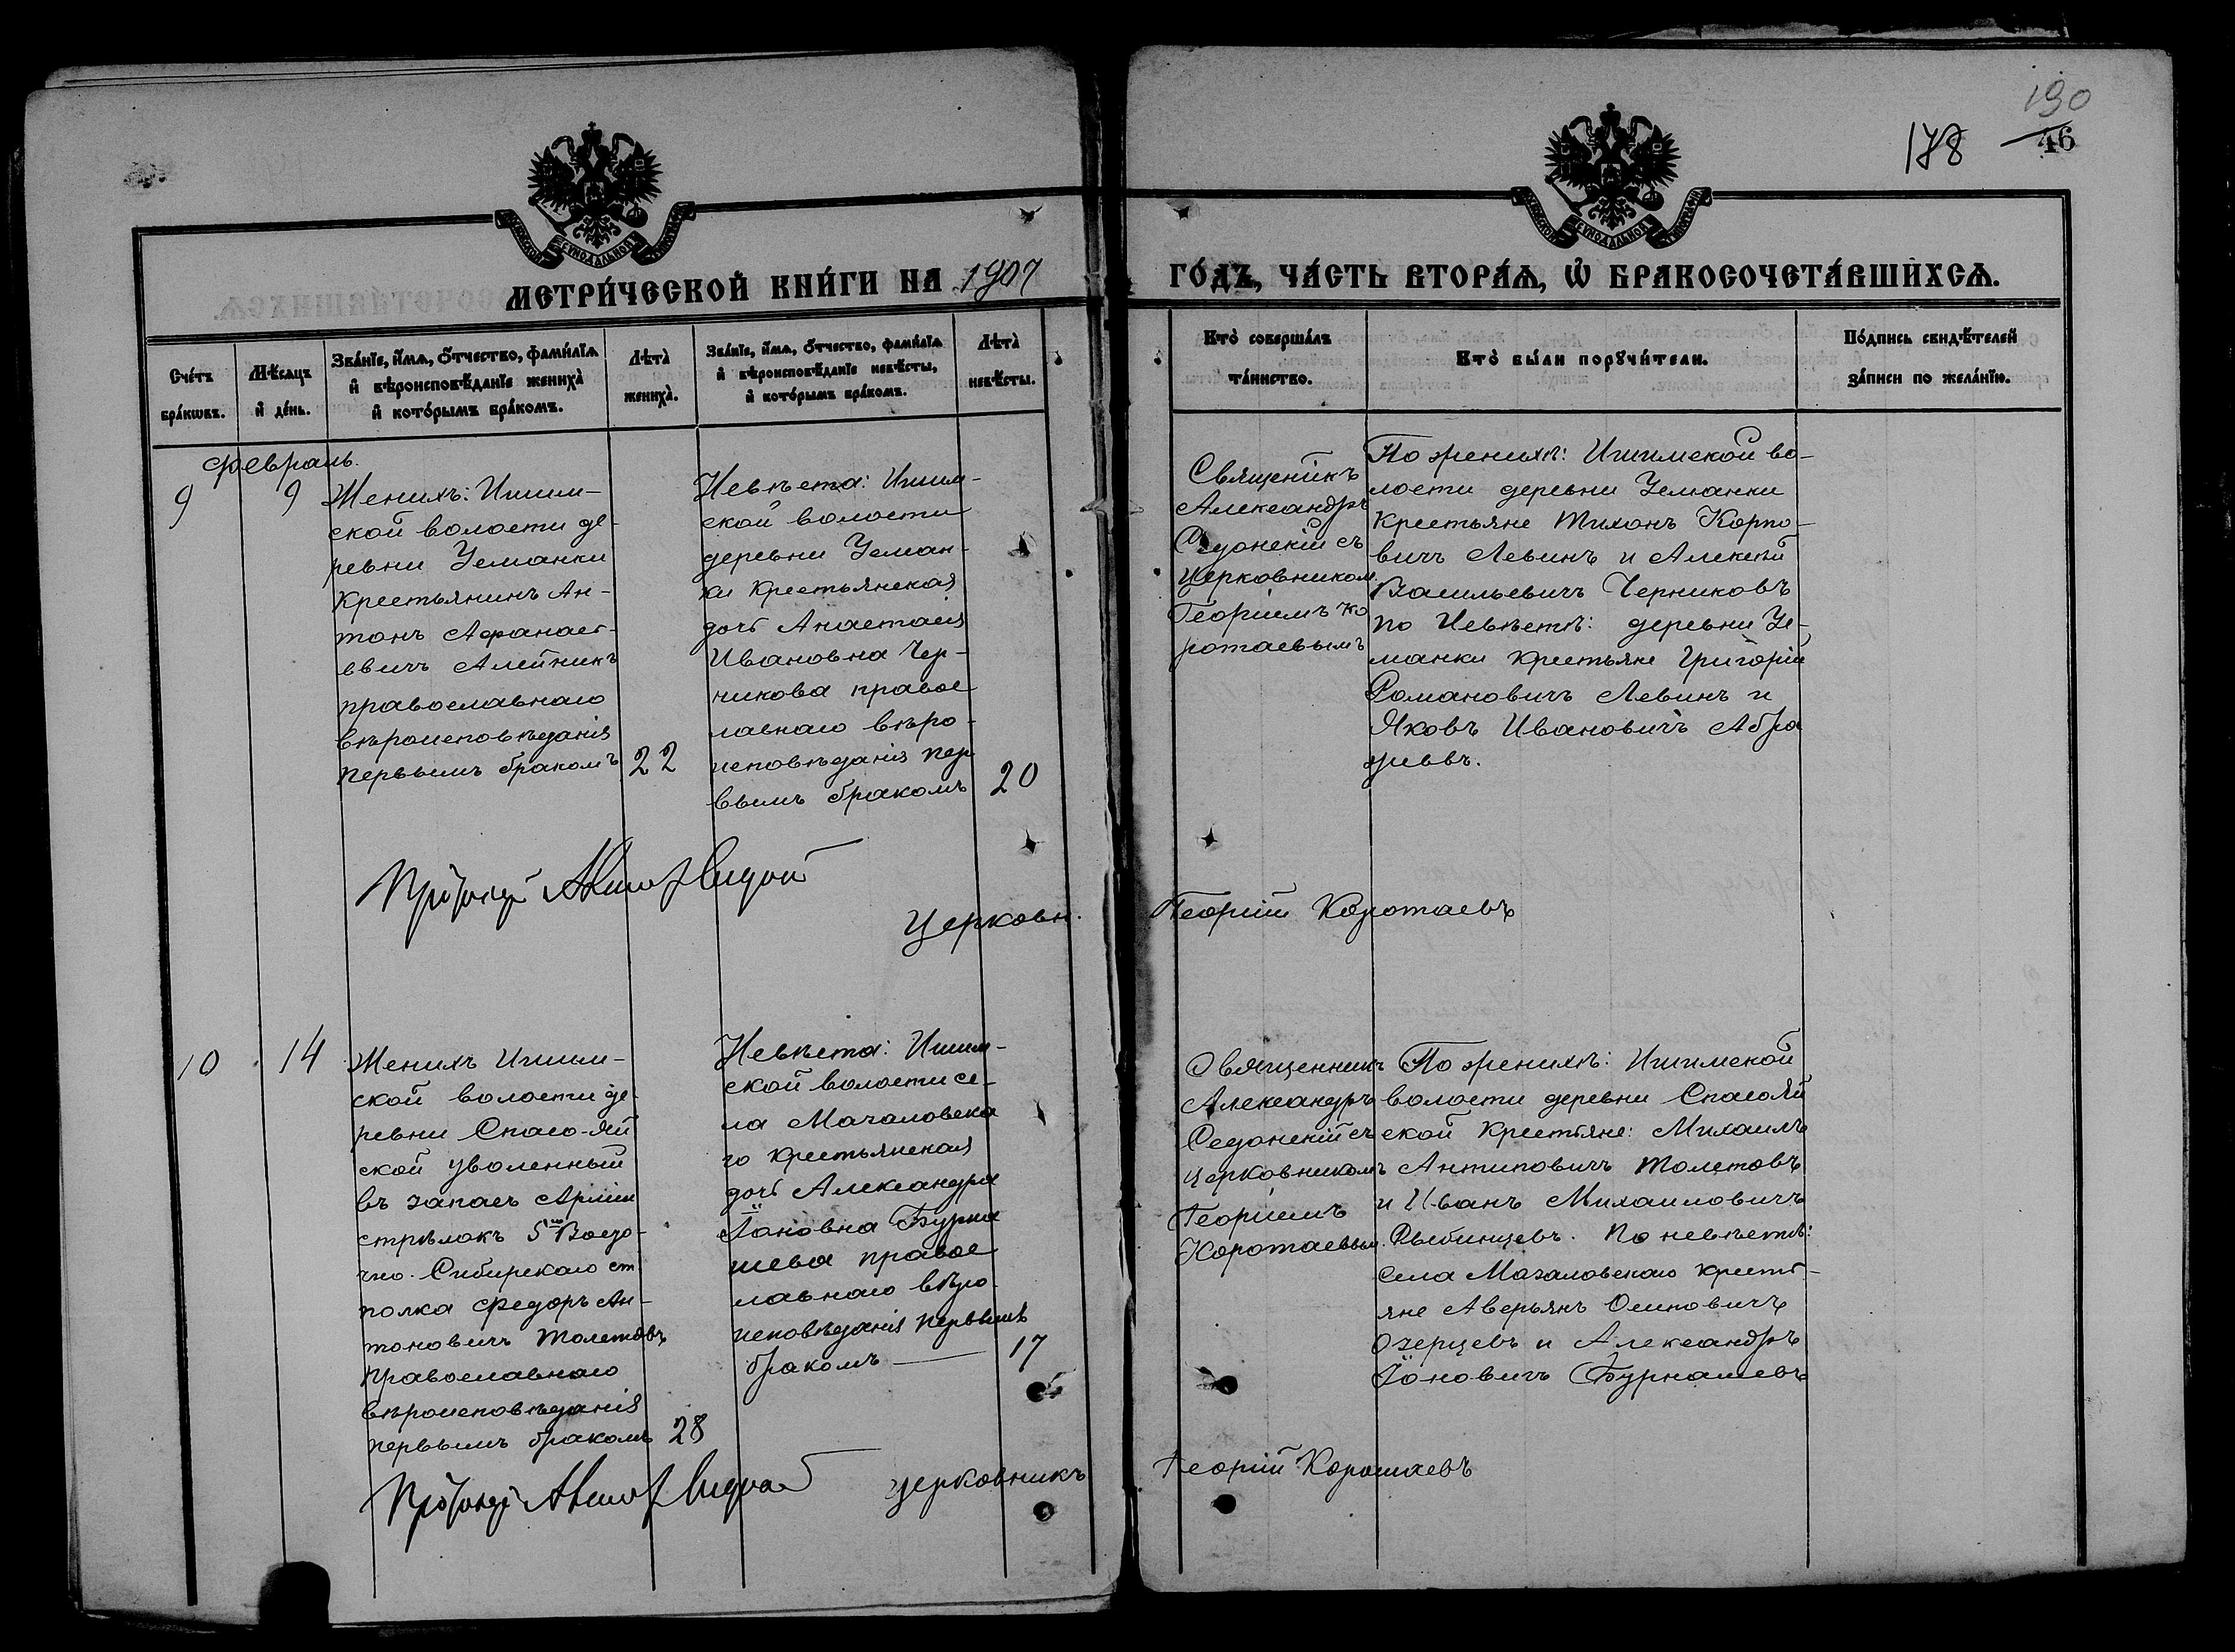 190
178 46
МЕТРИ́ЧЕСКОЙ КНИ́ГИ НА 1907 ГО́ДЪ, ЧА́СТЬ ВТОРА́Ѧ, Ѡ҆ БРАКОСОЧЕТА́ВШИХСѦ.
Сче́тъ бра́кѡвъ.
Мѣ́сѧцъ и҆ де́нь.
Зва́нїе, и҆́мѧ, ѻ҆́тчество, фами́лїѧ
и҆ вѣроисповѣ́данїе жениха̀
и҆ кото́рымъ бра́комъ.
Лѣта̀
жениха̀.
Зва́нїе, и҆́мѧ, ѻ҆́тчество, фами́лїѧ
и҆ вѣроисповѣ́данїе невѣ́сты,
и҆ кото́рымъ бра́комъ.
Лѣта̀
невѣ́сты.
Кто̀ соверша́лъ
та́инство.
Кто̀ бы́ли порꙋчи́тели.
По́дпись свидѣ́телей
за́писи по жела́нїю.
Февраль.
9
9
Женихъ: Ишим-
ской волости де-
ревни Усманки
Крестьянинъ Ан-
тонъ Афанась-
евичъ Алейникъ
православнаго
вѣроисповѣданія
первымъ бракомъ
22
Невѣста: Ишим-
ской волости
деревни Усман-
ки Крестьянская
дочь Анастасія
Ивановна Чер-
никова правос
лавнаго вѣро-
исповѣданія пер
вымъ бракомъ
20
Священикъ
Александръ
Седонскій съ
Церковником.
Георіемъ Ко
ротаевымъ
По женихѣ: Ишимской во-
лости деревни Усманки
Крестьяне Тихонъ Карпо-
вичъ Левинъ и Алексѣй
Васильевичъ Черниковъ
по Невѣстѣ: деревни Ус-
манки крестьяне Григорій
Романовичъ Левинъ и
Яковъ Ивановичъ Абра
жіевъ.
Церковн. Георій Коротаевъ
10
14
Женихъ Ишим-
ской волости де-
ревни Спасо-Яй
ской уволенный
въ запасъ Арміи
стрѣлокъ 5го Восто-
чно-Сибирскаго ст
полка Федоръ Ан-
тоновичъ Толстовъ
православнаго
вѣроисповѣданія
первымъ бракомъ
28
Невѣста: Ишим-
ской волости се-
ла Мачаловска
го крестьянская
дочь Александра
Іоновна Бурна
шева правос
лавнаго вѣро
исповѣданія первымъ
бракомъ
17
Священникъ
Александръ
Седонскій съ
церковникомъ
Георіемъ
Коротаевым.
По женихѣ: Ишимской
волости деревни СпасоЯй
ской Крестьяне: Михаилъ
Антиповичъ Толстовъ
и Иванъ Михаиловичъ
Рыбинцевъ. По невѣстѣ:
Села Мачаловскаго кресть-
яне Аверьянъ Осиповичъ
Озерцевъ и Александръ
Іоновичъ Бурнашевъ
церковникъ Георій Коротаевъ